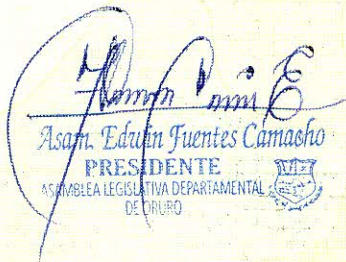 Asam. Edwin Fuentes Camacho
PRESIDENTE
ASAMBLEA LEGISLATIVA DEPARTAMENTAL
DE ORURO